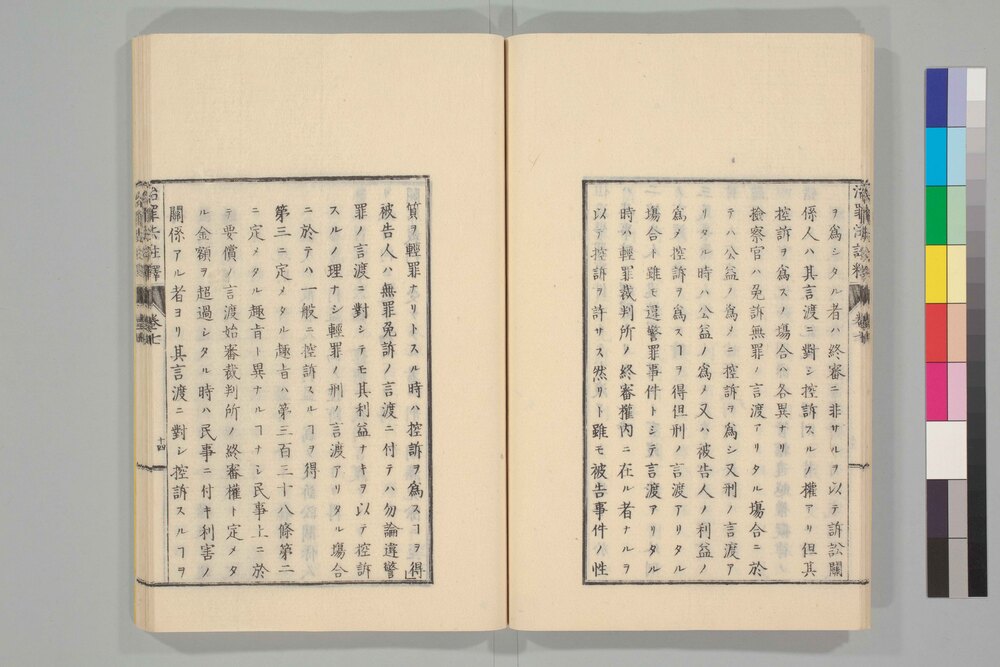 ヲ爲シタル者ハ終審ニ非サルヲ以テ訴訟關
係人ハ其言渡ニ對シ控訴スルノ權アリ但其
控訴ヲ爲スノ塲合ハ各異ナリ
檢察官ハ免訴無罪ノ言渡アリタル塲合ニ於
テハ公益ノ爲メニ控訴ヲ爲シ又刑ノ言渡ア
リタル時ハ公益ノ爲メ又ハ被告人ノ利益ノ
爲メ控訴ヲ爲スヿヲ得但刑ノ言渡アリタル
塲合ト雖モ違警罪事件トシテ言渡アリタル
時ハ輕罪裁判所ノ終審權内ニ在ル者ナルヲ
以テ控訴ヲ許サス然リト雖モ被告事件ノ性
質ヲ輕罪ナリトスル時ハ控訴ヲ爲スヿヲ得
被告人ハ無罪免訴ノ言渡ニ付テハ勿論違警
罪ノ言渡ニ對シテモ其利益ナキヲ以テ控訴
スルノ理ナシ輕罪ノ刑ノ言渡アリタル塲合
ニ於テハ一般ニ控訴スルヿヲ得
第三ニ定メタル趣旨ハ第三百三十八條第二
ニ定メタル趣旨ト異ナルヿナシ民事上ニ於
テ要償ノ言渡始審裁判所ノ終審權ト定メタ
ル金額ヲ超過シタル時ハ民事ニ付キ利害ノ
關係アル者ヨリ其言渡ニ對シ控訴スルヿヲ
治罪法註釋
卷七
十四